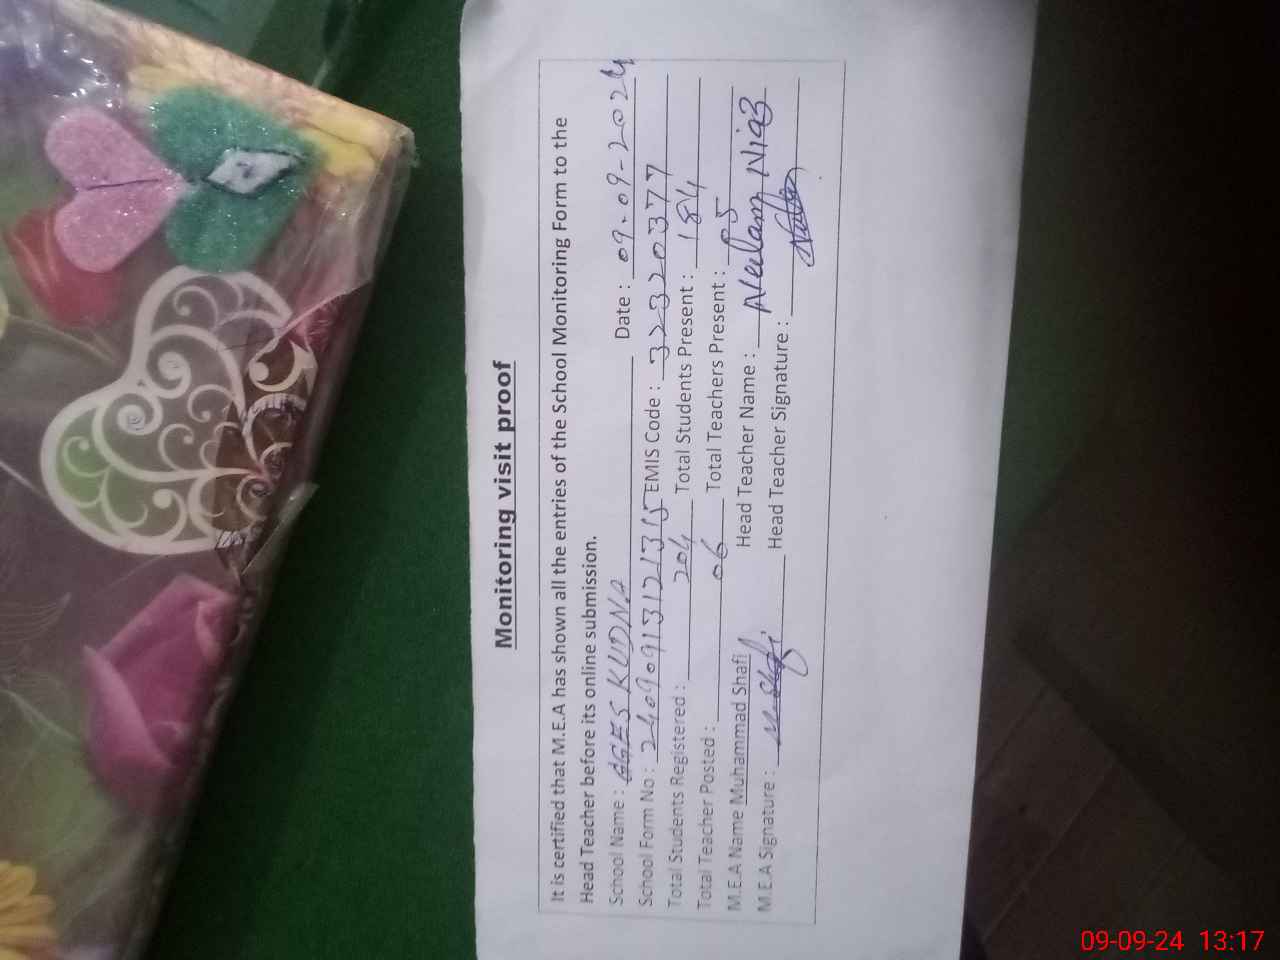 Monitoring visit proof
It is certified that M.E.A has shown all the entries of the School Monitoring Form to the
Head Teacher before its online submission.
School Name : GGES KUDNA Date : 09-09-2024
School Form No : 24090913121315 EMIS Code : 32320377
Total Students Registered : 204 Total Students Present : 184
Total Teacher Posted : 06 Total Teachers Present : 5
M.E.A Name Muhammad Shafi Head Teacher Name : Neelam Niaz
M.E.A Signature : M. Shafi Head Teacher Signature :
09-09-24 13:17